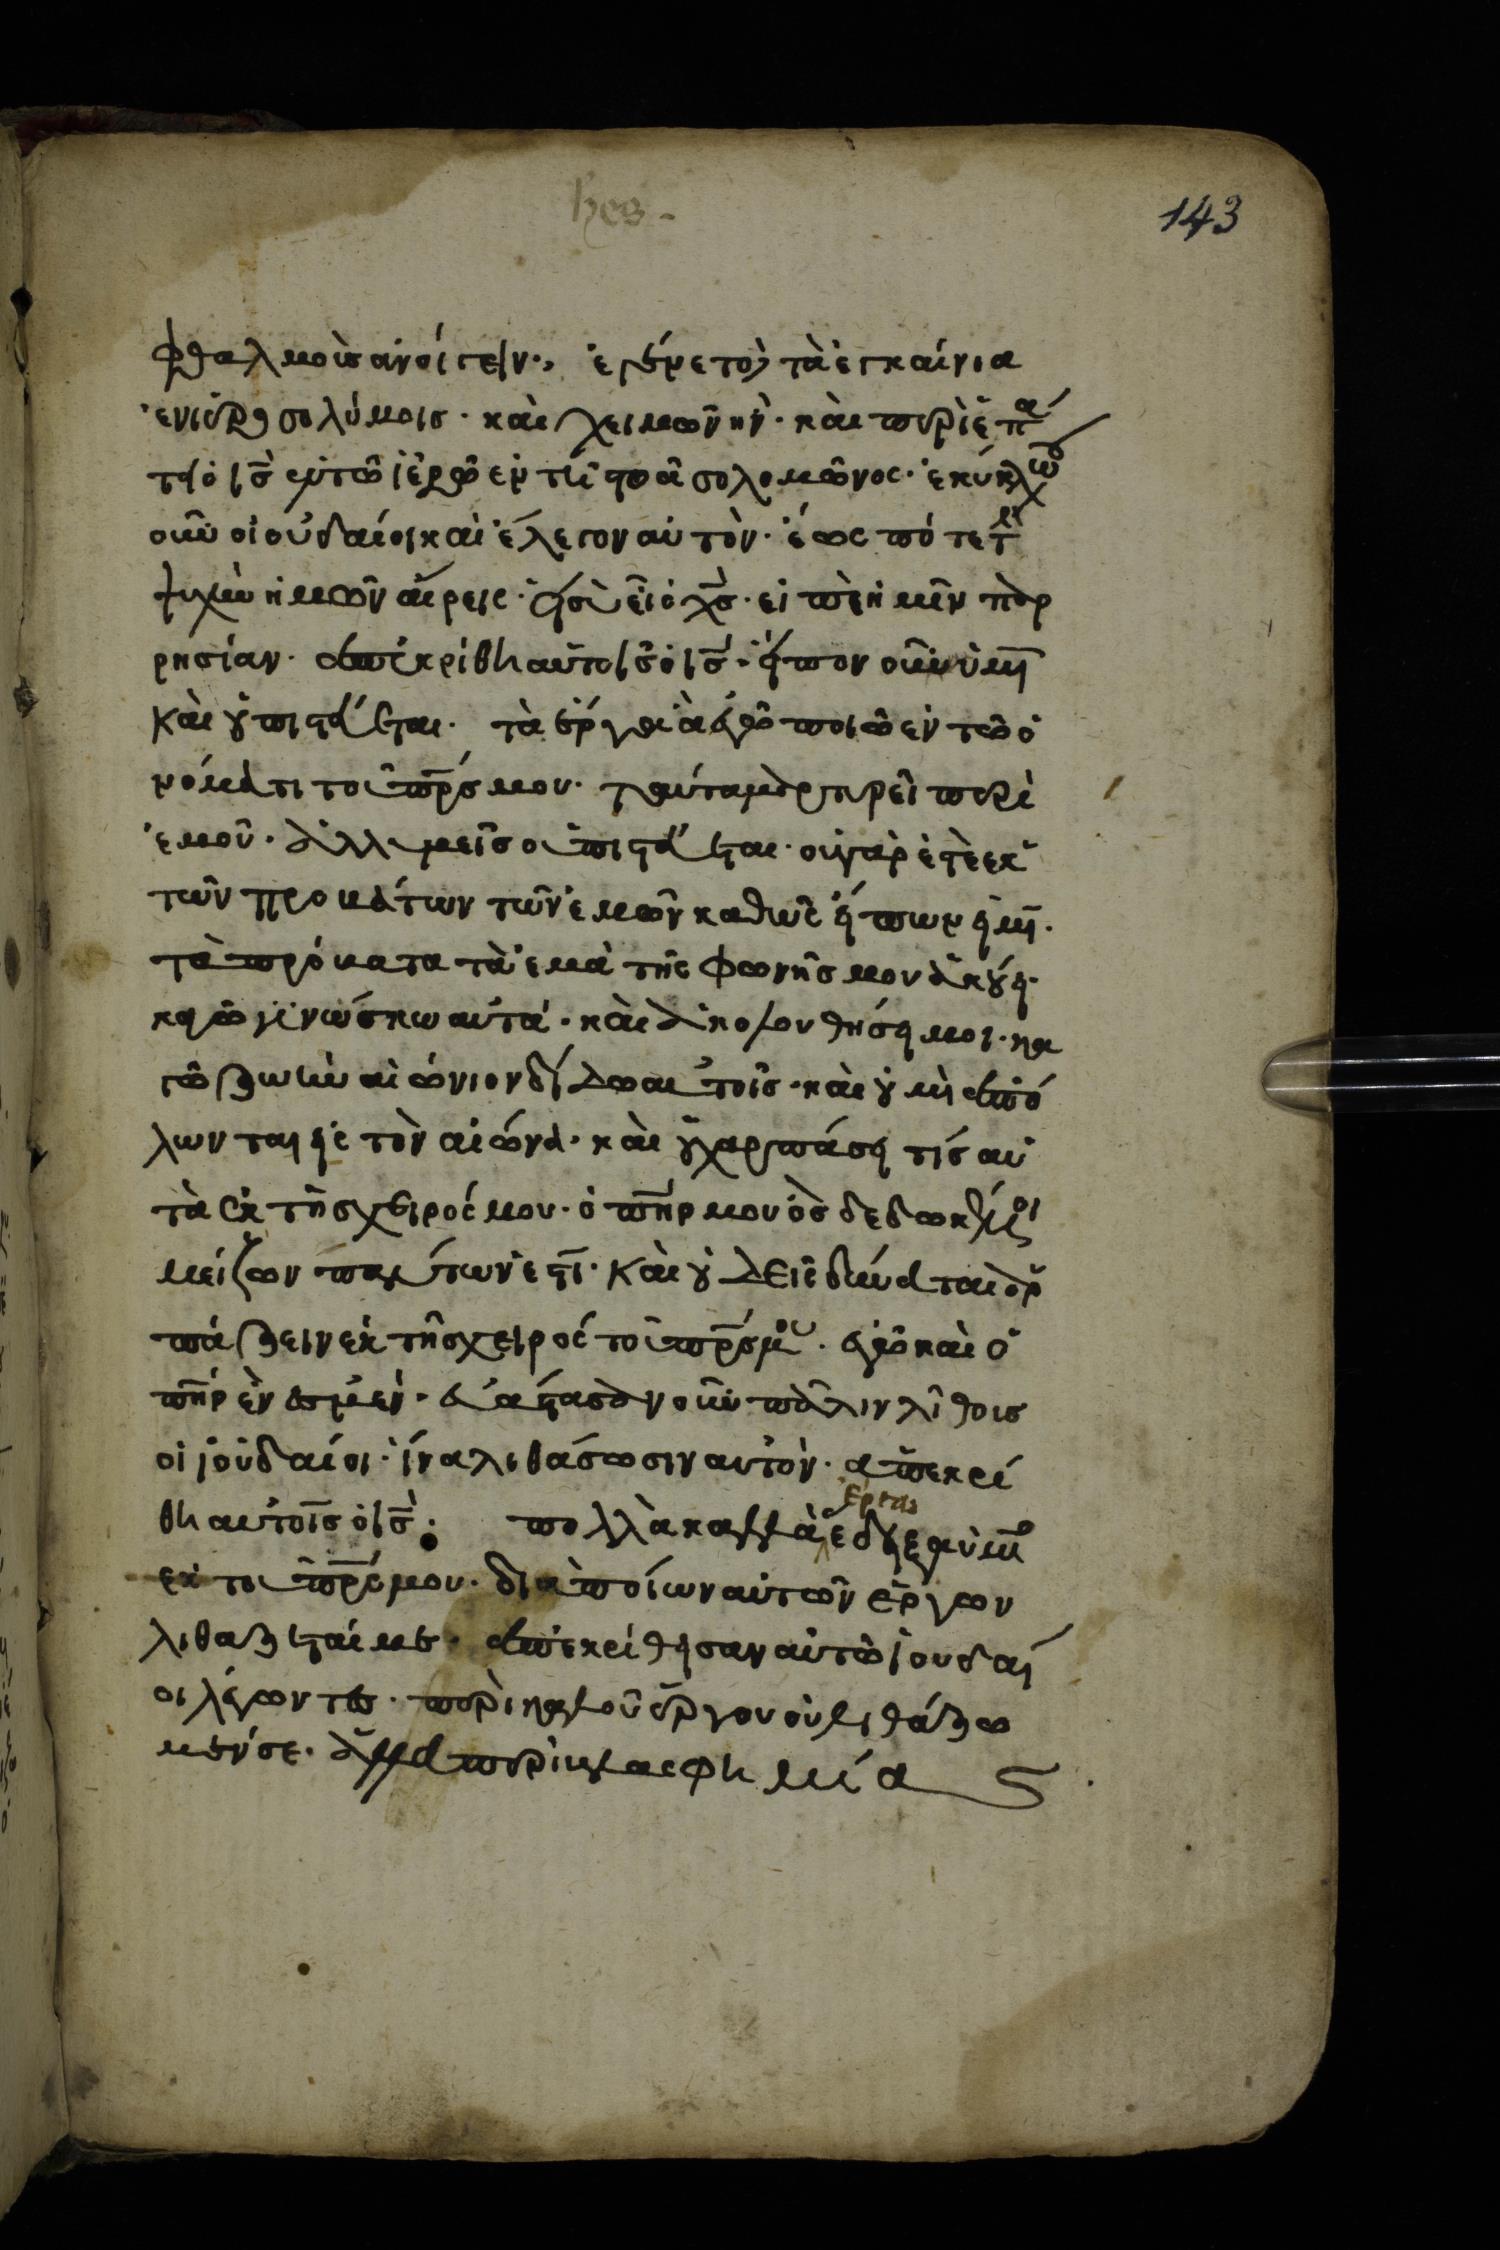 hes.
143
φθαλμοὺς ἀνοίγειν· ἐγένετο τὰ ἐγκαίνια
ἐν ἱεροσολύμοις· καὶ χειμὼν ἦν· καὶ περιεπά
τει ὁ ις ἐν τῶ ἱερῶ ἐν τῆ στοᾶ σολομῶνος· ἐκύκλωσαν
οὖν οἱ ουδαίοι καὶ ἔλεγον αὐτὸν· ἕως πότε τὴν
ψυχὴν ἡμῶν αἴρεις· εἰ σὺ εἶ ὁ χς· εἰπὲ ἡμῖν παρ
ρησίαν· ἀπεκρίθη αὐτοῖς ὁ ις· εἶπον οὖν ὑμῖν
καὶ οὐ πιστεύεται· τὰ ἔργα ἃ ἐγὼ ποιῶ ἐν τῶ ὀ
νόματι τοῦ πρς μου· ταῦτα μαρτυρεῖ περὶ
ἐμοῦ· ἀλλ ὑμεῖς οὐ πιστεύεται· οὐ γὰρ ἐστὲ ἐκ
τῶν προβάτων τῶν ἐμῶν καθὼς εἶπων ὑμῖν·
τὰ πρόβατα τὰ ἐμὰ τῆς φωνῆς μου ἀκούει·
καγὼ γινώσκω αὐτά· καὶ ἀκολουθήσει μοι· κα
γὼ ζωὴν αἰώνιον δίδωμι αὐτοῖς· καὶ οὐ μὴ ἀπό
λωνται εἰς τὸν αἰώνα· καὶ οὐχ αρπάσει τίς αὐ
τὰ ἐκ τῆς χειρός μου· ὁ πηρ μου ὃς δέδωκέ μοι
μείζων πάντων ἐστί· καὶ οὐδεὶς δύναται ἁρ
πάζειν ἐκ τῆς χειρός τοῦ πρς μου· ἐγὼ καὶ ὁ
πηρ ἕν ἐσμεν· ἐβάστασαν οὖν πάλιν λίθοις
οἱ ἰουδαίοι· ἵνα λιθάσωσιν αὐτὸν· ἀπεκρί
θη αὐτοῖς ὁ ις· πολλὰ καλλὰ ἔργα ἔδειξα ὑμῖν
ἐκ τοῦ πρς μου· διὰ ποίων αὐτῶν ἔργων
λιθάζεταί με· ἀπεκρίθησαν αὐτῶ ἰουδαί
οι λέγωντες· περὶ καλοῦ ἔργου οὐ λιθάζω
μέν σε· ἀλλὰ περὶ βλασφημίας